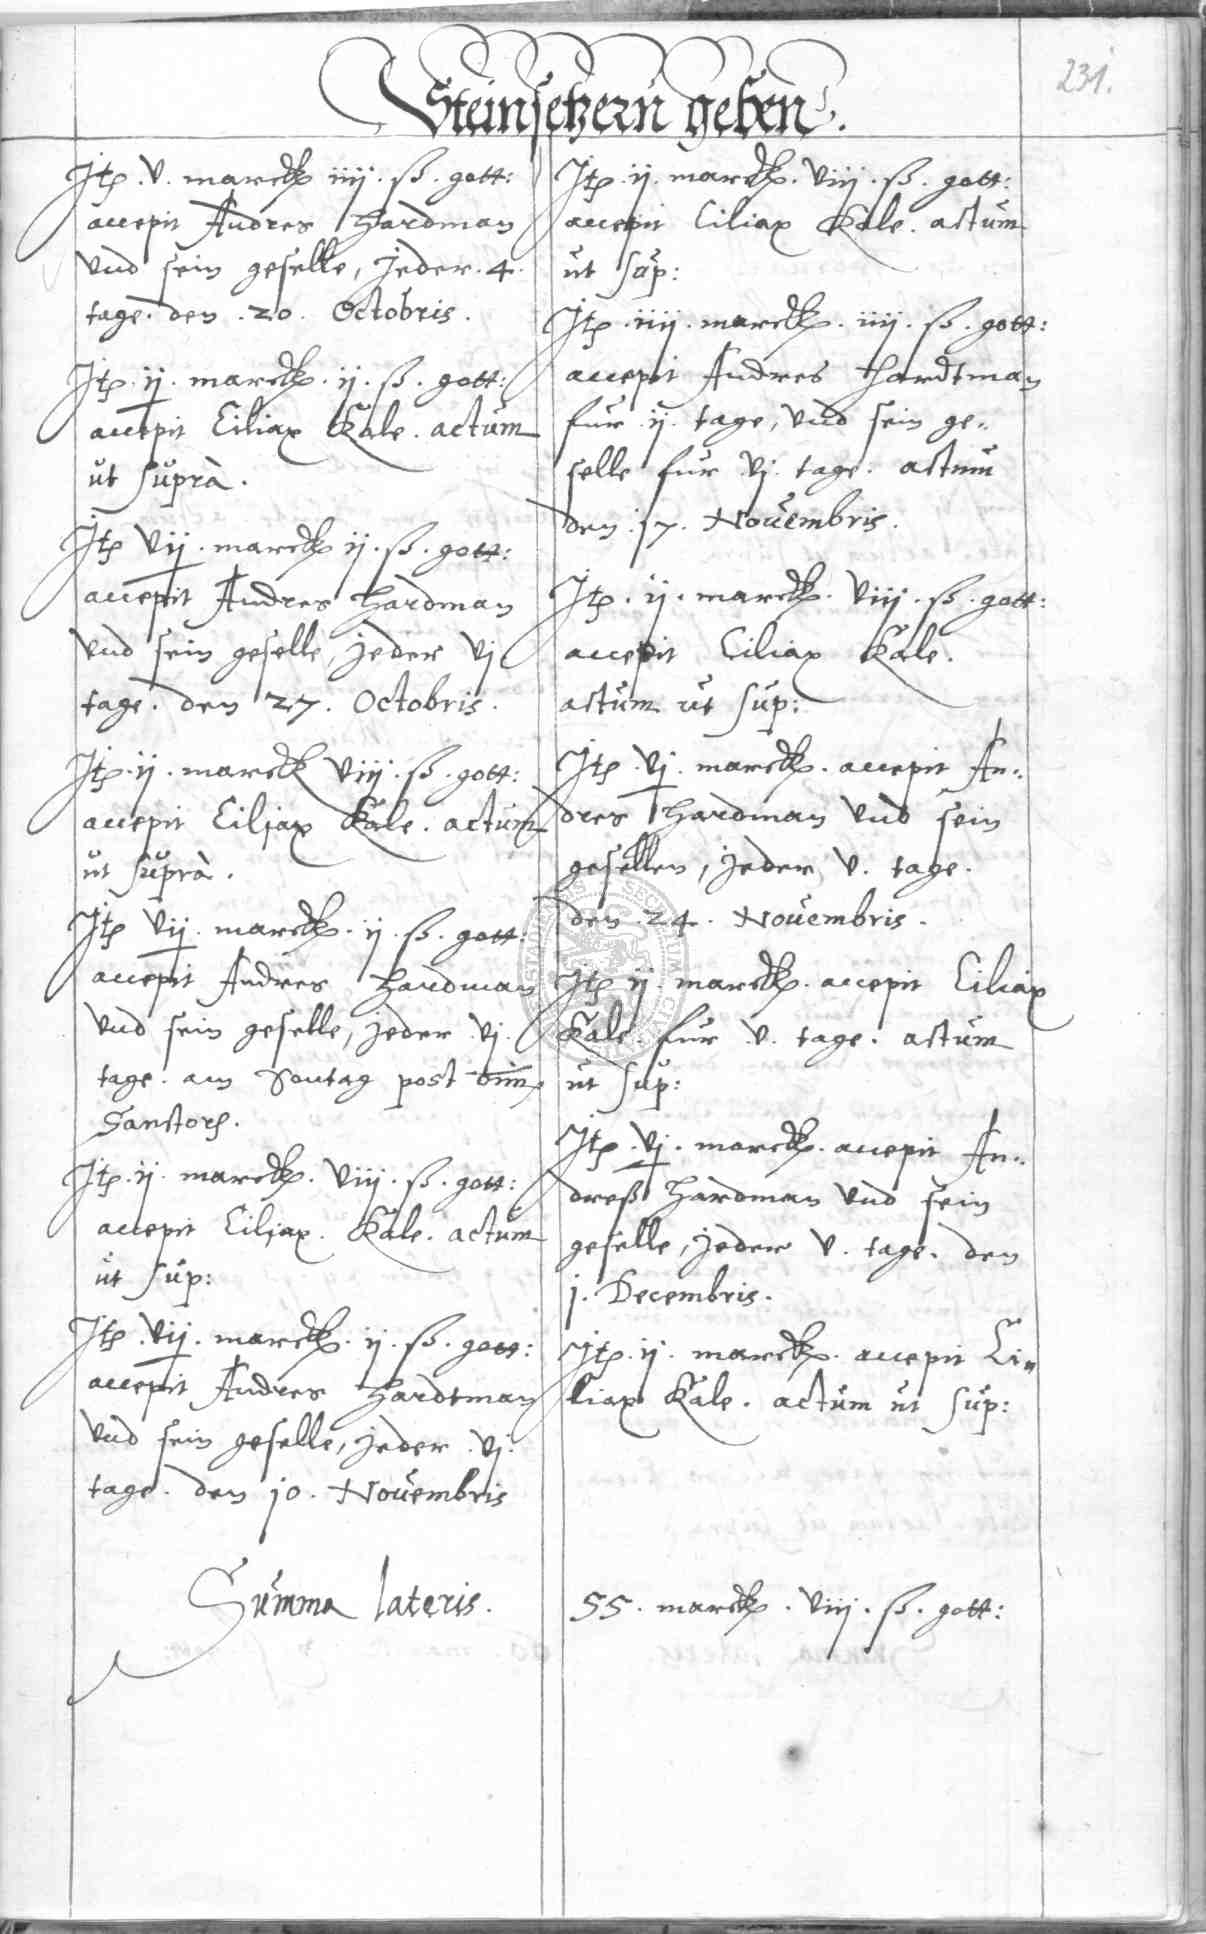 231.
Steinsetzern geben.
Jtp. v. marckp iiij. ß. gott:
accepit Andres Hardman
vnd sein geselle, jeder. 4.
tage. den .20. Octobris.
Jtp. ij. marckp. ij. ß. gott:
accepit Ciliax Kale. actum
ut suprà.
Jtp vij. marckp ij. ß. gott:
accepit Andres Hardman
vnd sein geselle, jeder vj
tage. den 27. Octobris.
Jtp. ij. marckp viij. ß. gott:
accepit Ciljax Kale. actum
ut suprà.
Jtp vij. marckp. ij. ß. gott:
accepit Andres Hardman
vnd sein geselle, jeder. vj.
tage. am Sontag post oim
Sanctorp.
Jtp. ij. marckp. viij. ß. gott:
accepit Ciljax. Kale. actum
ut sup:
Jtp. vij. marckp. ij. ß. gott:
accepit Andres Hardtman
vnd sein geselle, jeder. vj.
tage. den 10. Novembris
Jtp. ij. marckp. viij. ß. gott:
accepit Ciliax Kale. actum
ut sup:
Jtp. iiij. marckp. iiij. ß. gott:
accepit Andres Hardtman
fur ij. tage, vnd sein ge=
selle fur vj. tage. actum
den .17. Novembris.
Jtp. ij. marckp. viij. ß. gott:
accepit Ciliax Kale.
actum ut sup:
Jtp. vj. marckp. accepit An=
dres Hardman vnd sein
gesellen, jeder v. tage.
den .24. Novembris.
Jtp ij. marckp. accepit Ciliax
Kale. fur .v. tage. actum
ut sup:
Jtp. vj. marckp. accepit An=
dreß Hardman vnd sein
geselle, jeder v. tage. den
j. Decembris.
Jtp. ij. marckp. accepit Ci=
liax Kale. actum ut sup:
Summa lateris. 55. marckp. viij. ß. gott: